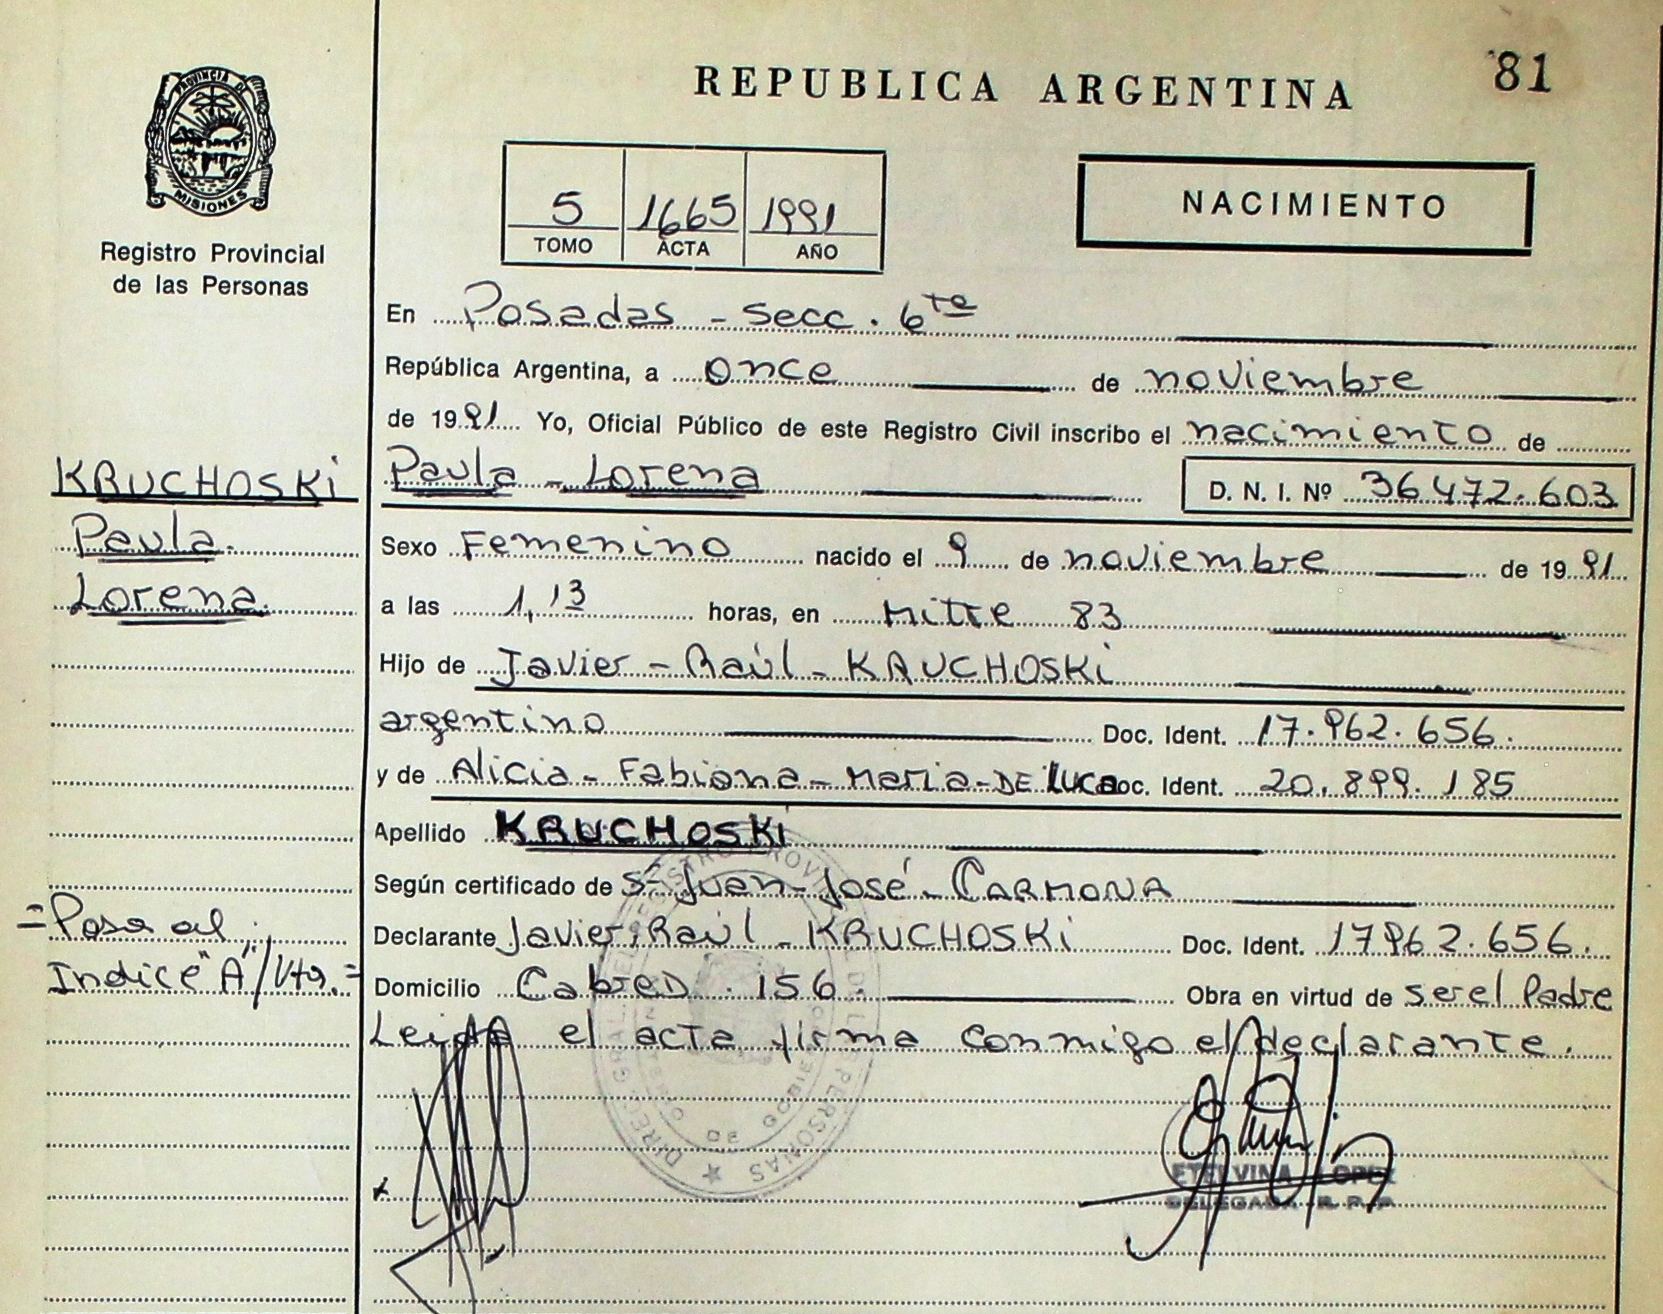 81
REPUBLICA ARGENTINA
PROVINCIA DE
MISIONES
Registro Provincial
de las Personas
NACIMIENTO
5 1665 1991
TOMO ACTA AÑO
En Posadas - Secc. 6ta
República Argentina, a once de noviembre
de 1991 Yo, Oficial Público de este Registro Civil inscribo el nacimiento de
KRUCHOSKi
Paula
Lorena
Paula - Lorena D. N. I. Nº 36472.603
Sexo Femenino nacido el 9 de noviembre de 1991
a las 1,13 horas, en Mitre 83
Hijo de Javier - Raúl - KRUCHOSKi
argentino Doc. Ident. 17.962.656.
y de Alicia - Fabiana - Maria - DE LUCA Doc. Ident. 20.899.185
Apellido KRUCHOSKI
Según certificado de Juan - José - CARMONA
Declarante Javier, Raúl - KRUCHOSKi Doc. Ident. 17962.656.
Domicilio Cabred. 156. Obra en virtud de ser el Padre
Leida el acta firma conmigo el declarante.
= Pasa al
Indice "A" / Vta. =
ETELVINA LOPEZ
DELEGADA R. P. P.